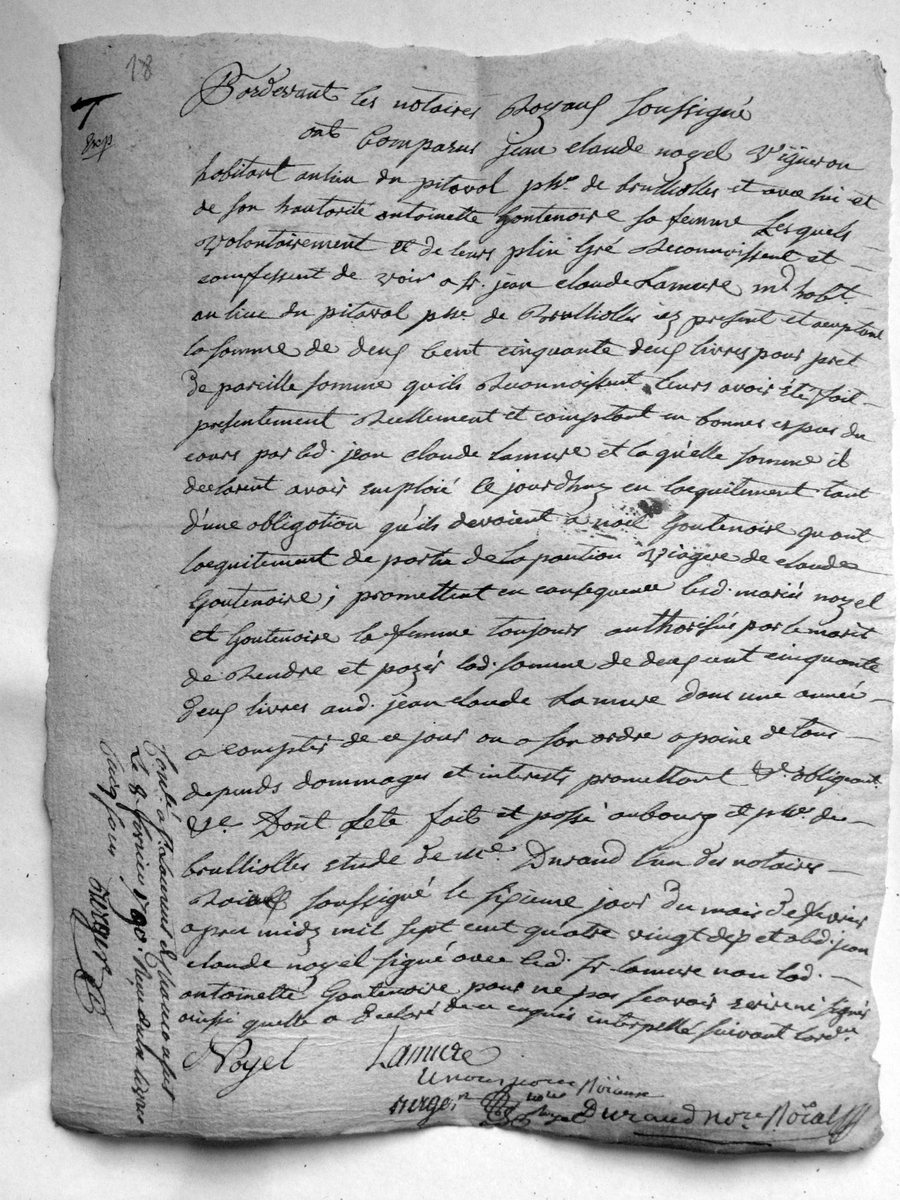 18
Exp
Pardevant les notaires Royaux soussigné
ont Comparus jean claude noyel Vigneron
habitant aulieu du pitaval psse. de brulliolles et avec lui et
de son hautorité antoinette Goutenoire sa femme Lesquels
volontairement et de leurs plin Gré Reconnoissent et
comfessent de voir a sr. jean claude Lamure md. habt.
aulieu du pitaval psse. de Brulliolles icy present et aceptant
la somme de deux Cent cinquante deux livres pour prêt
de pareille somme qu'ils Reconnoissent leurs avoir été fait
presentement Reellement et comptant en bonnes espces du
cours par led. jean claude Lamure et la qu'elle somme il
declarent avoir Emploié Ce jourdhuy en lacquitement tant
d'une obligation qu'ils devoient a noel Goutenoire qu'ant
lacquitement de partie de la pention Viagere de claude
Goutenoire ; promettent en consequence lesd. mariés noyel
et Goutenoire la femme toujours authorisés par le marit
de Rendre et payér lad. somme de deux cent cinquante
deux livres aud. jean claude Lamure dans une année
a comptér de ce jour ou a son ordre a paine de tous
depends dommages et interests promettant &c. obligeant
&c. Dont acte fait et passé au bourg et psse. de
brulliolles etude de me. Durand l'un des notaires
Roiaux soussigné le sixieme jour du mois de fevrier
apres midy mil sept cent quatre vingt dix et a led. jean
claude noyel signé avec led. sr. lamure non lad.
antoinette Goutenoire pour ne pas scavoir ecrire ni signér
ainsi quelle a declaré de ce enquis interpellé suivant lord.
Noyel Lamure
Durand nore. Roial
Contlé. a St. Laurent de chamousset
Le 8 fevrier 1790. Reçu